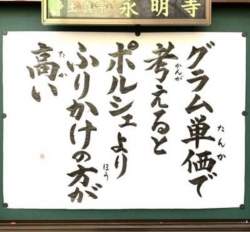 永明寺
グラム単価で
考えると
ポルシェより
ふりかけの方が
高い
たんか
かんが
ほう
たか